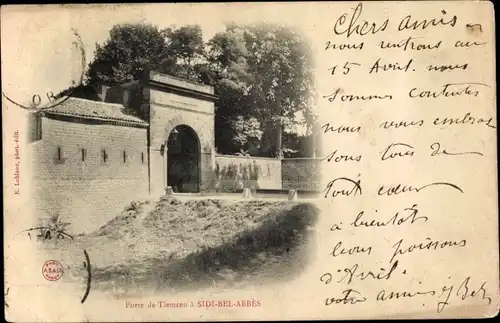 Chers amis
nous rentrons au
15 Avril. nous
sommes contentes
nous vous embras
sons tous de
Tout cœur
à bientôt
bons poissons
d'Avril.
votre amie
E. Leblanc, phot. édit.
ASA
Porte de Tlemcen à SIDI-BEL-ABBÈS